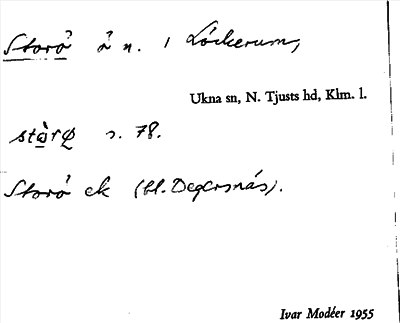 Storå å n. i Löckerum,
Ukna sn, N. Tjusts hd, Klm. l.
s. 78.
Storå ek (bl. Degersnäs).
Ivar Modéer 1955